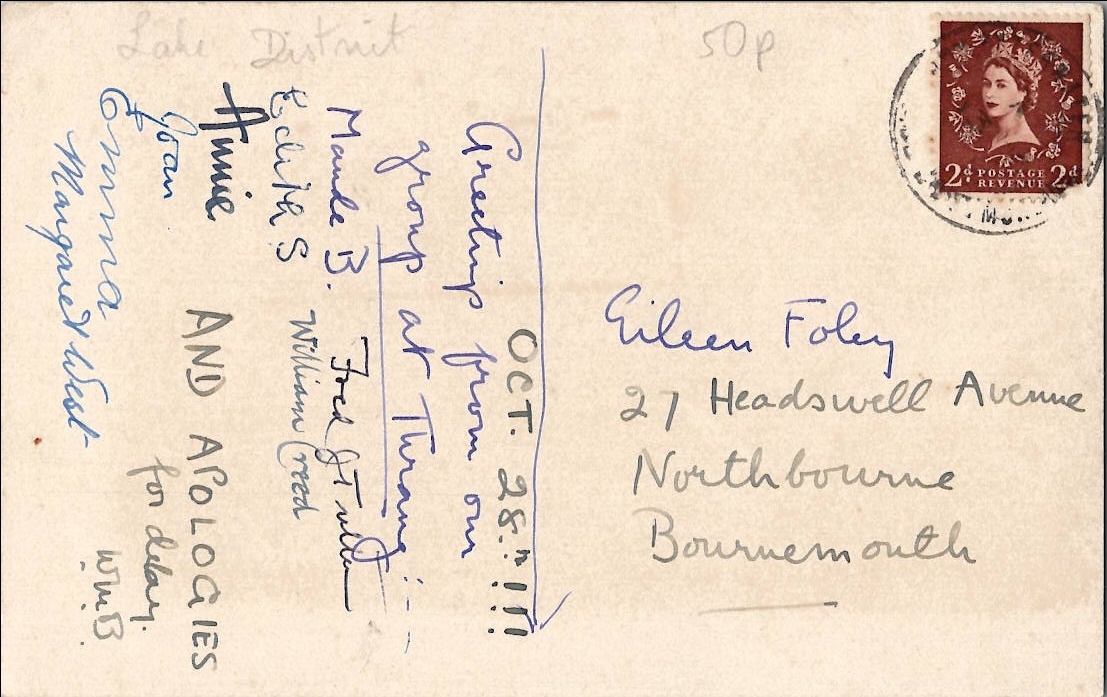 Lake District
50p
2d. POSTAGE 2d.
REVENUE
OCT. 28.th !!!
Greetings from our
group at Thrang :-
Maude B. Fred J
Edith S William Creed
Annie AND APOLOGIES
Joan for delay.
Emma WMB.
Margaret West
Eileen Foley
27 Headswell Avenue
Northbourne
Bournemouth